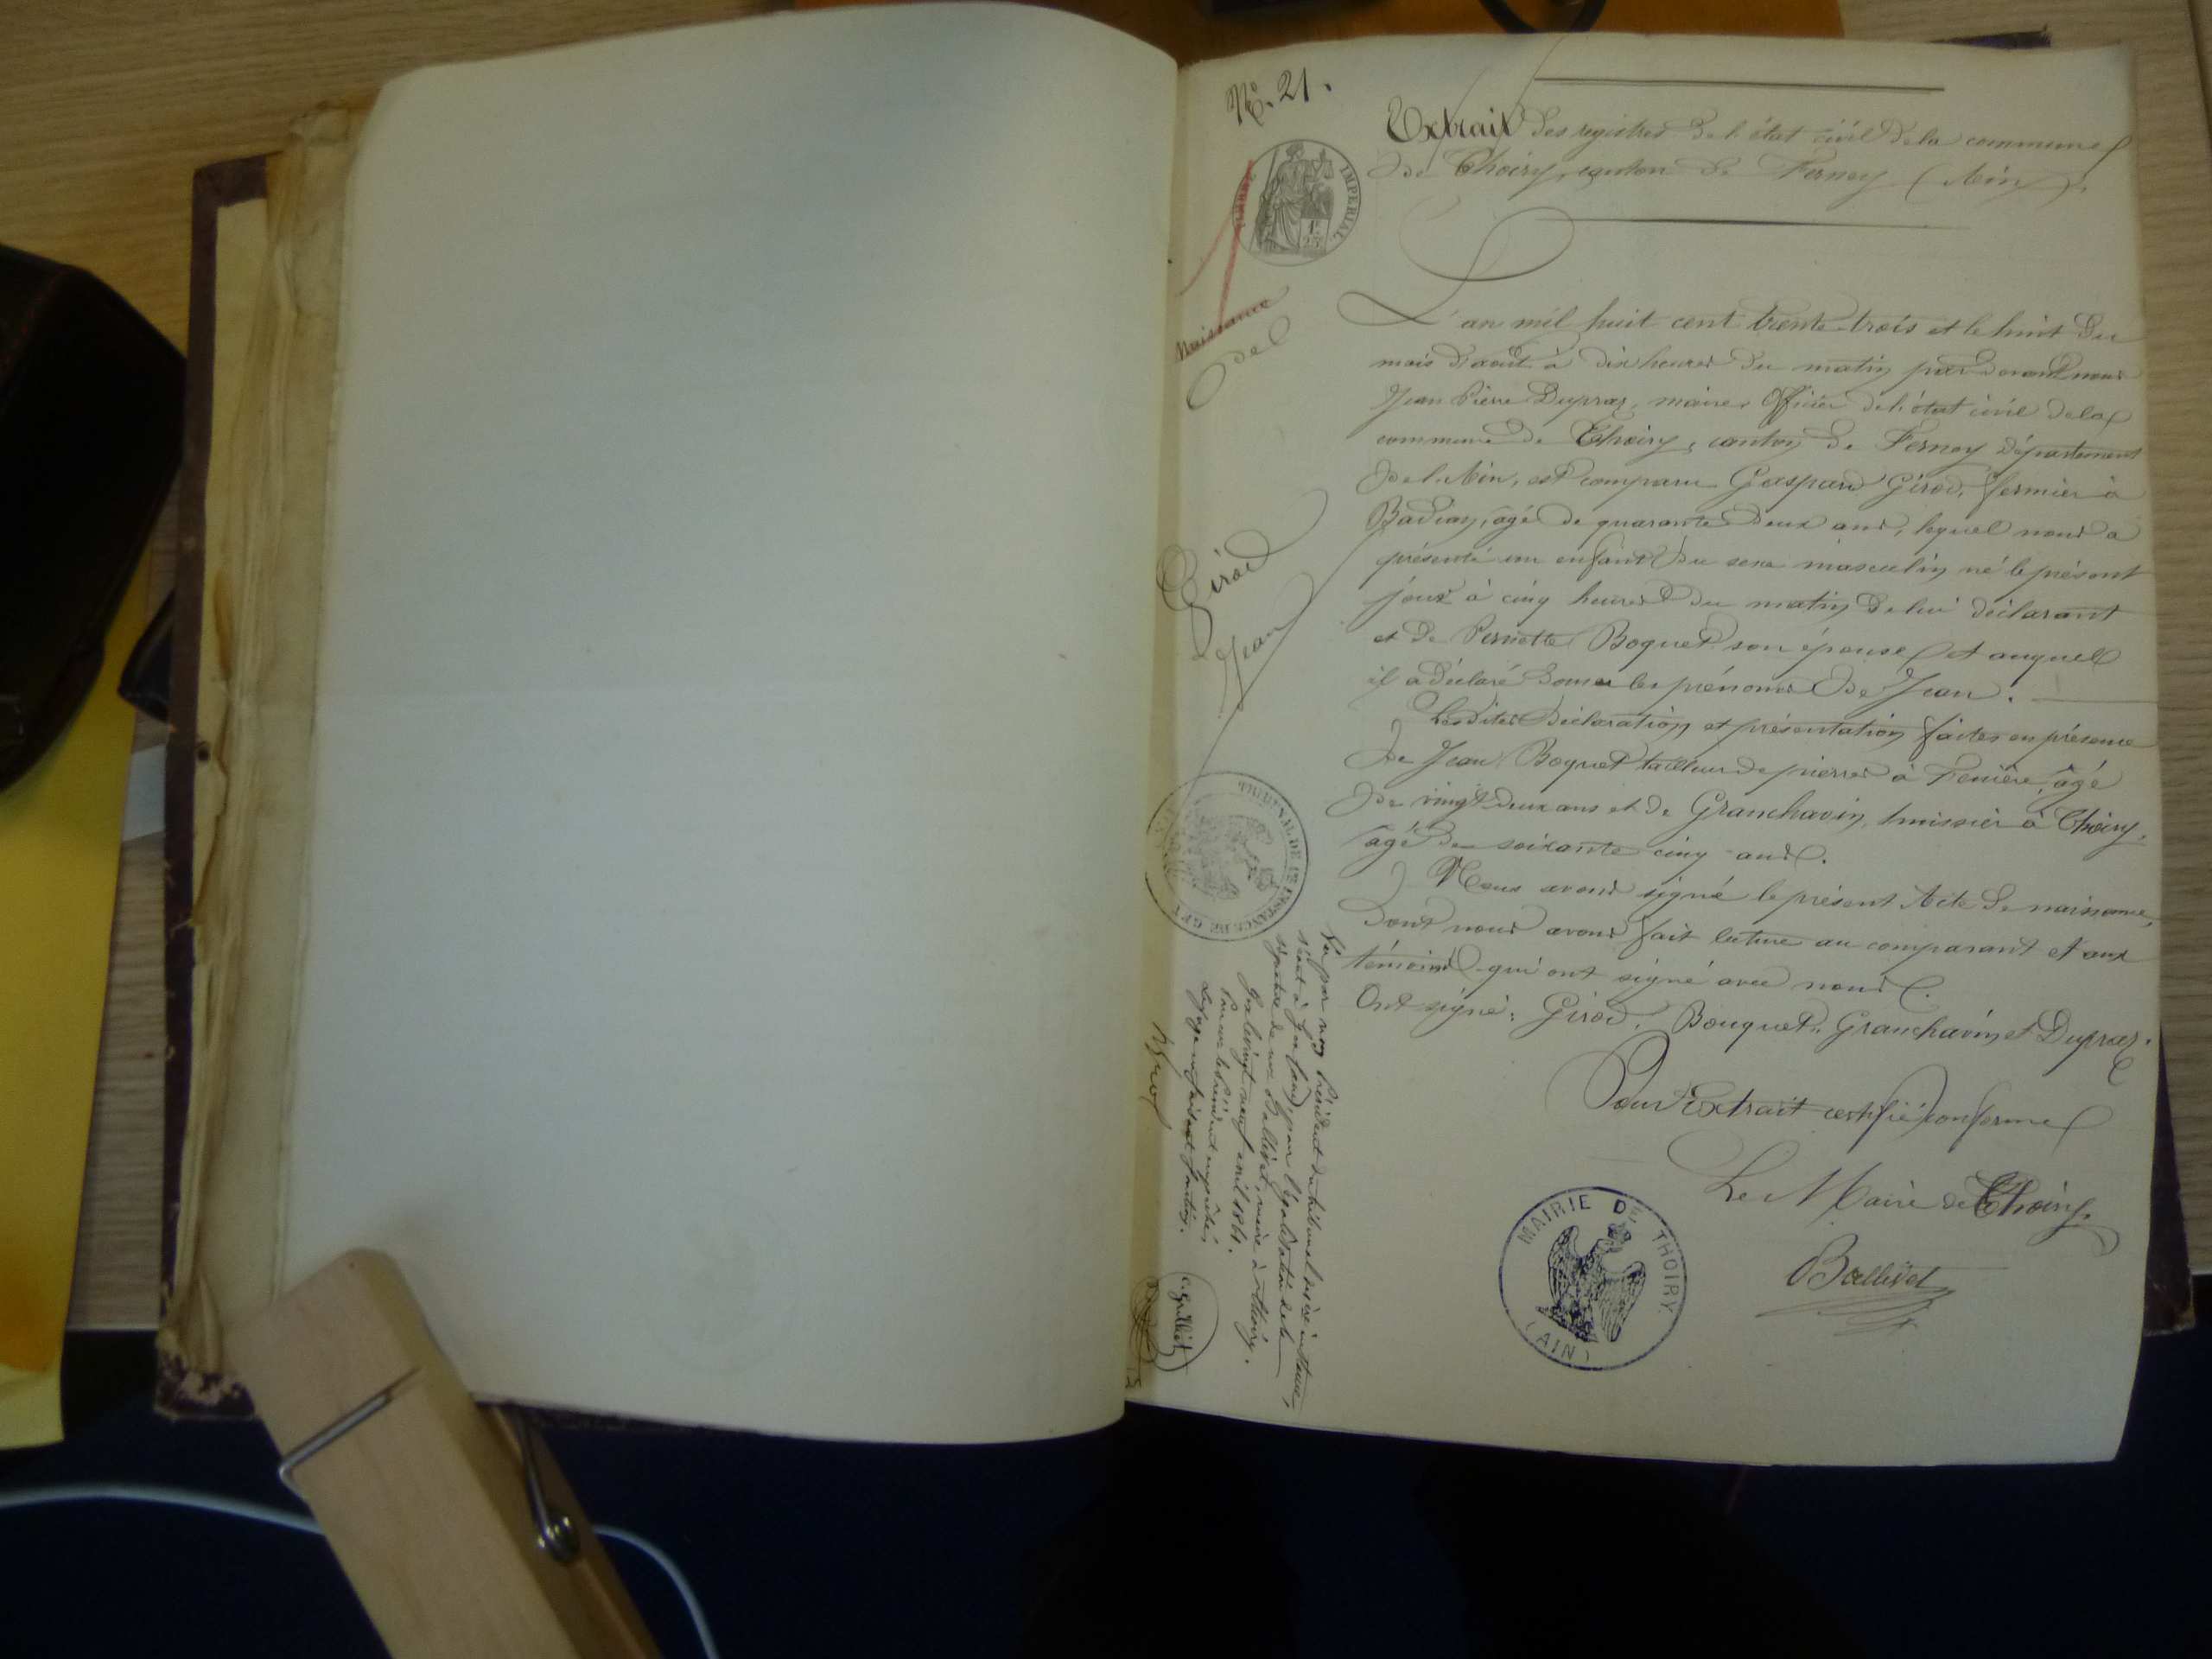 N°. 21.
IMPERIAL
1F
25
Naissance
de
Girod
Jean
Extrait des registres de l'état civil de la commune
de Thoiry, canton de Ferney (Ain).
L'an mil huit cent trente-trois et le huit du
mois d'août à dix heures du matin par devant nous
Jean Pierre Dupraz, maire, Officier de l'état civil de la
commune de Thoiry, canton de Ferney département
de l'Ain, est comparu Gaspard Girod, fermier à
Badian, agé de quarante deux ans, lequel nous a
présenté un enfant du sexe masculin né le présent
jour à cinq heures du matin de lui déclarant
et de Pernette Boquet son épouse et auquel
il a déclaré donner les prénoms de Jean.
Lesdites déclaration et présentation faites en présence
de Jean Boquet tailleur de pierres à Fenière, âgé
de vingt-deux ans et de Granchavin, huissier à Thoiry,
agé de soixante cinq ans.
Nous avons signé le présent Acte de naissance,
dont nous avons fait lecture au comparant et aux
témoins qui ont signé avec nous.
Ont signé: Girod, Bouquet, Granchavin et Dupraz.
Pour Extrait certifié conforme
Le Maire de Thoiry,
Ballivet
MAIRIE DE THOIRY
(AIN)
TRIBUNAL DE 1RE INSTANCE DE GEX
Vu par nous Président du tribunal civil de 1ère instance,
séant à Gex (ain), pour légalisation de la
signature de mr Ballivet, maire à Thoiry.
Gex le vingt-neuf avril 1861.
Pour mr le Président empêché,
Le juge en faisant fonction.